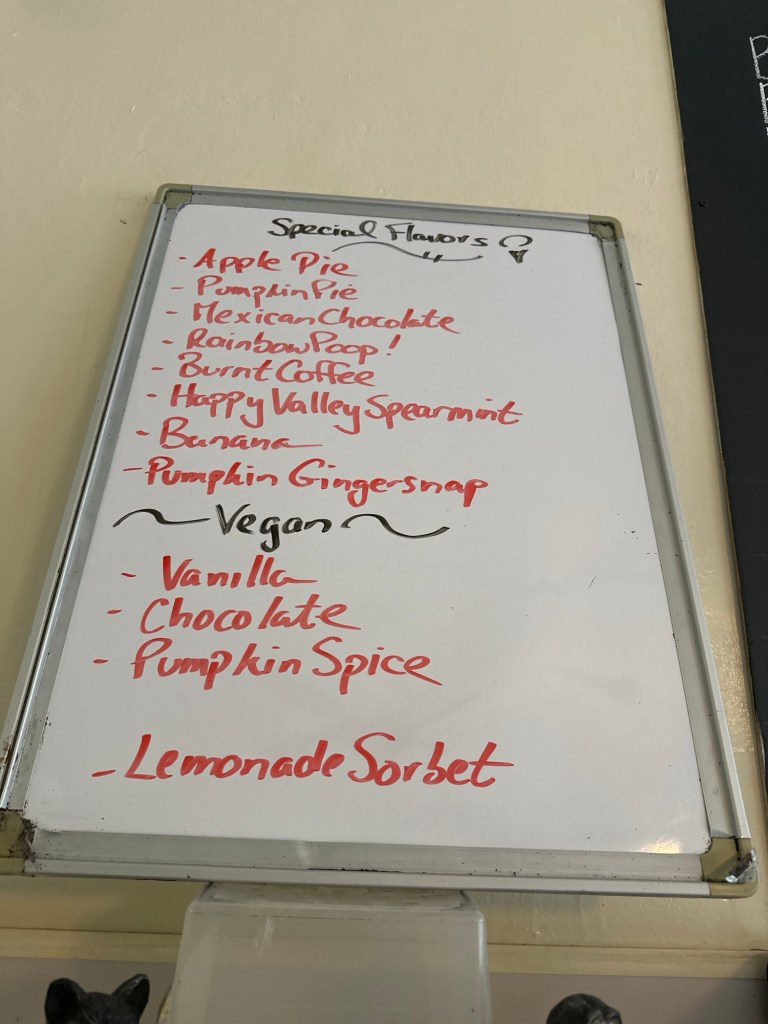 Special Flavors
- Apple Pie
- Pumpkin Pie
- Mexican Chocolate
- Rainbow Poop!
- Burnt Coffee
- Happy Valley Spearmint
- Banana
- Pumpkin Gingersnap
~ Vegan ~
- Vanilla
- Chocolate
- Pumpkin Spice
- Lemonade Sorbet